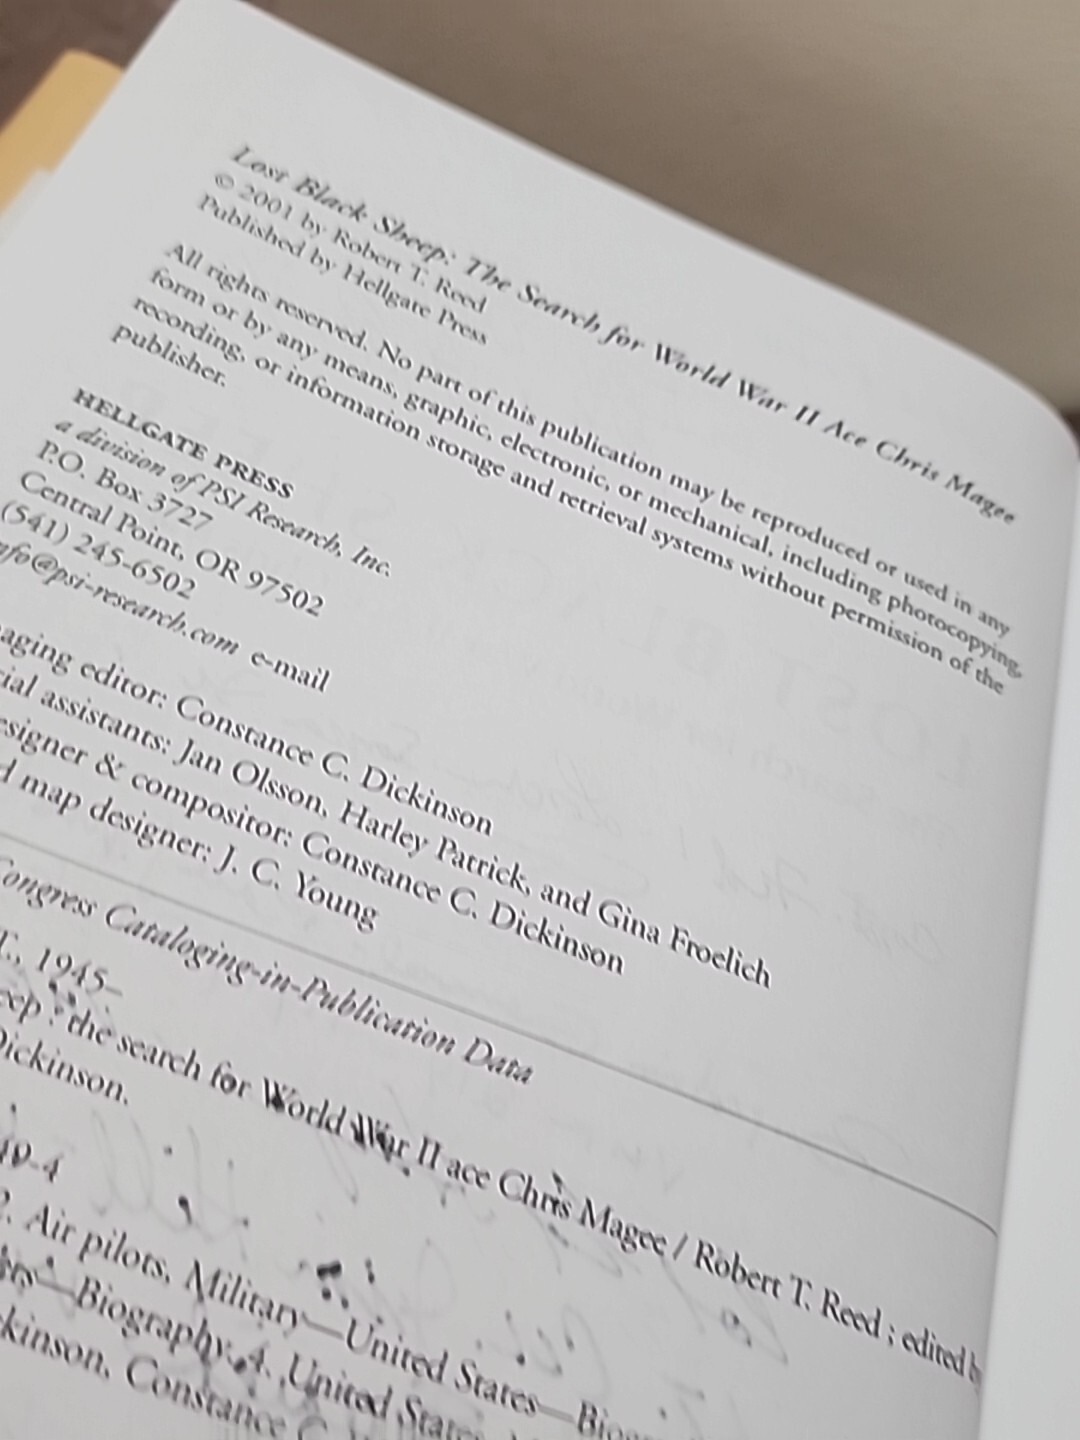 Lost Black Sheep: The Search for World War II Ace Chris Magee
© 2001 by Robert T. Reed
Published by Hellgate Press
All rights reserved. No part of this publication may be reproduced or used in any
form or by any means, graphic, electronic, or mechanical, including photocopying,
recording, or information storage and retrieval systems without permission of the
publisher.
HELLGATE PRESS
a division of PSI Research, Inc.
P.O. Box 3727
Central Point, OR 97502
(541) 245-6502
nfo@psi-research.com e-mail
aging editor: Constance C. Dickinson
ial assistants: Jan Olsson, Harley Patrick, and Gina Froelich
esigner & compositor: Constance C. Dickinson
d map designer: J. C. Young
Congress Cataloging-in-Publication Data
T., 1945–
eep : the search for World War II ace Chris Magee / Robert T. Reed ; edited b
Dickinson.
-4
2. Air pilots, Military—United States—Biog
—Biography. 4. United States
kinson, Constance C.